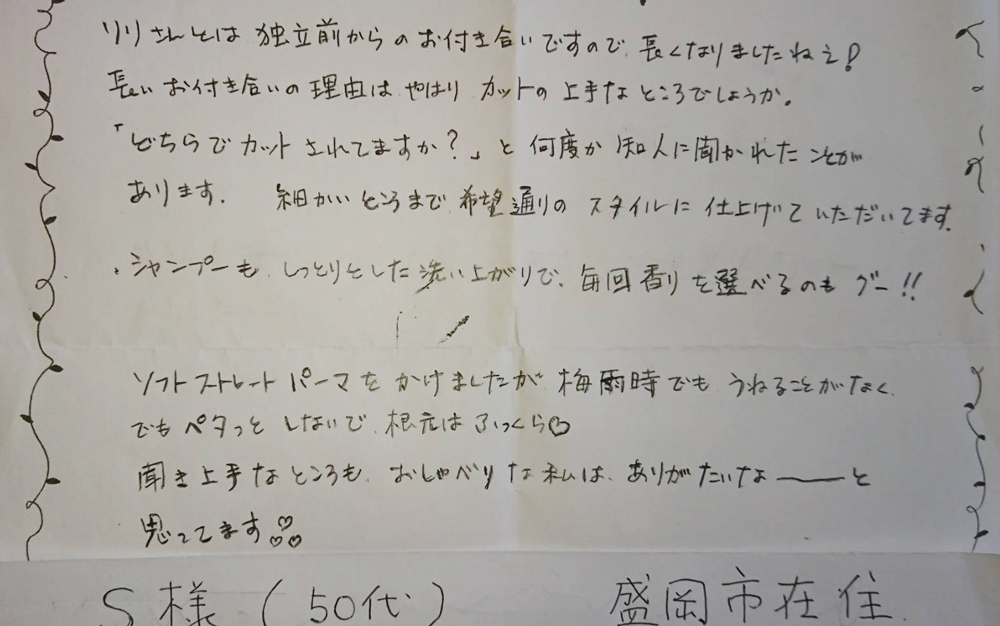 リリさんとは 独立前からのお付き合いですので、長くなりましたねぇ!
長いお付き合いの理由は やはり カットの上手なところでしょうか。
「どちらでカットされてますか?」と 何度か知人に聞かれたことが
あります. 細かいところまで 希望通りの スタイルに 仕上げていただいてます.
、シャンプーも しっとりとした洗い上がりで、毎回香りを選べるのも グー!!
ソフトストレートパーマを かけましたが 梅雨時でも うねることがなく
でもペタっと しないで、根元は ふっくら♡
聞き上手なところも、おしゃべりな私は、ありがたいな――と
思ってます♡♡♡
S様 (50代) 盛岡市在住